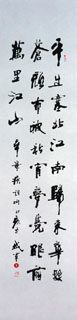 平生塞北江南歸來華髮
蒼顏布被秋宵夢覺眼前
萬里江山